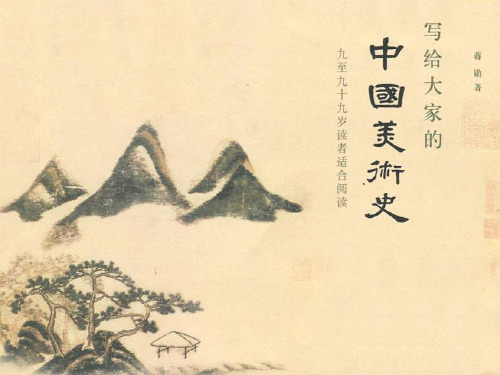 蒋 勋 著
写给大家的
中國美術史
九至九十九岁读者适合阅读